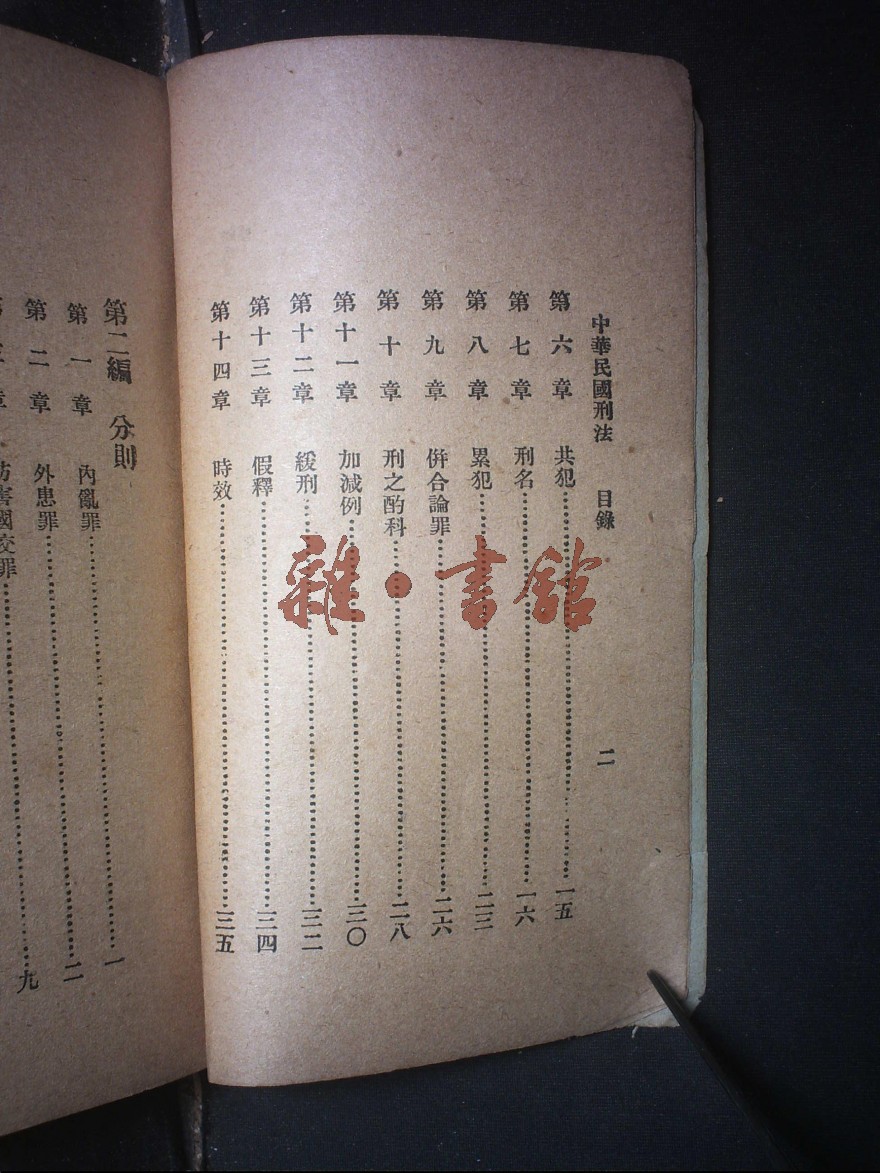 中華民國刑法 目錄 二
第六章 共犯 一五
第七章 刑名 一六
第八章 累犯 二三
第九章 併合論罪 二六
第十章 刑之酌科 二八
第十一章 加減例 三〇
第十二章 緩刑 三二
第十三章 假釋 三四
第十四章 時效 三五
第二編 分則
第一章 內亂罪 一
第二章 外患罪 二
章 妨害國交罪 九
雜·書館